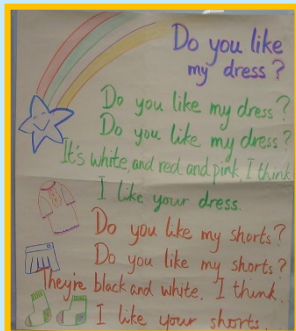 Do you like
my dress?
Do you like my dress?
Do you like my dress?
It's white, and red and pink, I think.
I like your dress.
Do you like my shorts?
Do you like my shorts?
They're black and white, I think.
I like your shorts.